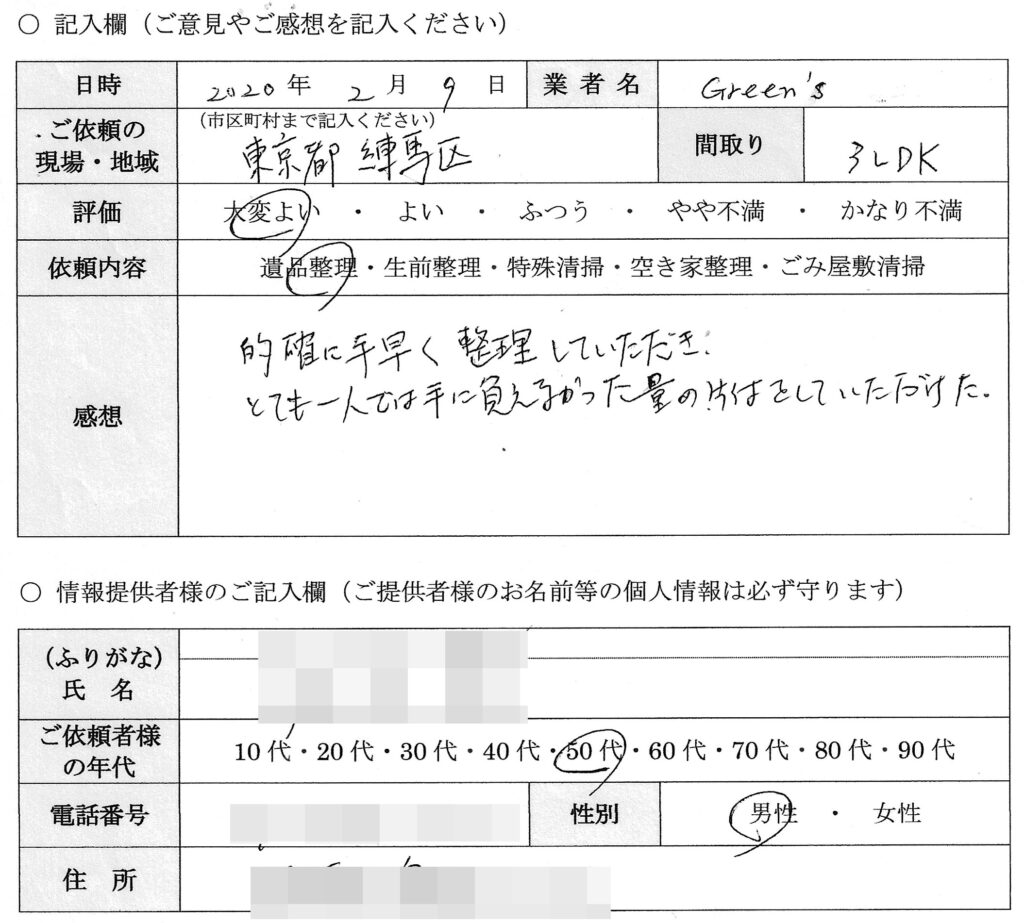 ○ 記入欄（ご意見やご感想を記入ください）
日時 2020年 2月 9日 業者名 Green's
ご依頼の現場・地域 （市区町村まで記入ください） 東京都 練馬区 間取り 3LDK
評価 大変よい ・ よい ・ ふつう ・ やや不満 ・ かなり不満
依頼内容 遺品整理・生前整理・特殊清掃・空き家整理・ごみ屋敷清掃
感想
的確に手早く整理していただき、
とても一人では手に負えなかった量の片付をしていただけた。
○ 情報提供者様のご記入欄（ご提供者様のお名前等の個人情報は必ず守ります）
（ふりがな）
氏 名
ご依頼者様の年代 10代・20代・30代・40代・50代・60代・70代・80代・90代
電話番号 性別 男性 ・ 女性
住 所